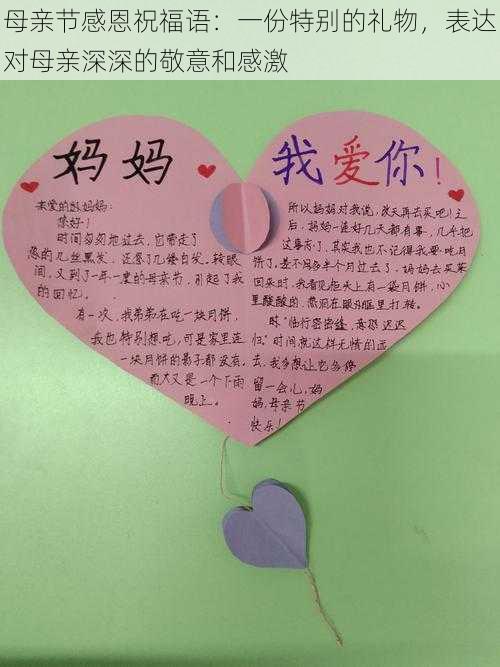 母亲节感恩祝福语：一份特别的礼物，表达
对母亲深深的敬意和感激
妈妈
亲爱的 妈妈：
您好！
时间匆匆地过去，它带走了
您的几丝黑发，还答了几缕白发。转眼
间，又到了一年一度的母亲节，引起了我
的回忆。
有一次，我弟弟在吃一块月饼，
我也特别想吃，可是家里连
一块月饼的影子都没有，
而天又是一个下雨
晚上。
我爱你！
所以妈妈对我说，改天再去买吧！之
后，妈妈一连好几天都有事，几乎把
这事忘了，其实我也不记得我要吃月
饼了。差不多多半个月过去了，妈妈去买菜
回来时，我看见柜头上有一袋月饼，心
里酸酸的，意泪在眼眶里打转。
咏“临行密密缝，意恐迟迟
归。”时间就这样无情的逝
去，我多想让它多停
留一会儿，妈
妈，母亲节
快乐！